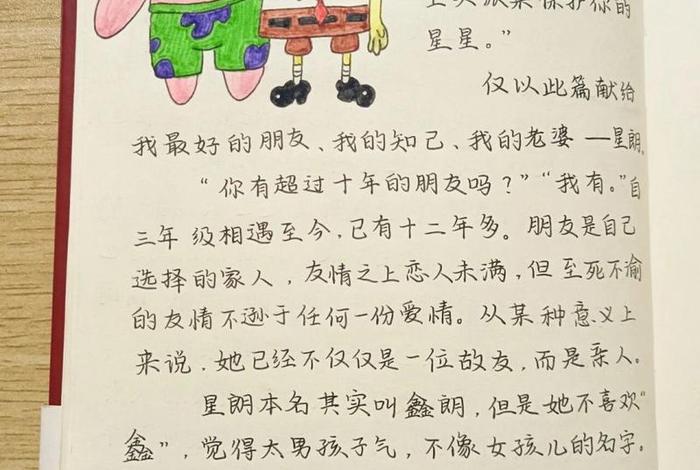 上天派来保护你的
星星。”
仅以此篇献给
我最好的朋友、我的知己、我的老婆——星朗。
“你有超过十年的朋友吗？”“我有。”自
三年级相遇至今，已有十二年多。朋友是自己
选择的家人，友情之上恋人未满，但至死不渝
的友情不逊于任何一份爱情。从某种意义上
来说，她已经不仅仅是一位故友，而是亲人。
星朗本名其实叫鑫朗，但是她不喜欢“
鑫”，觉得太男孩子气，不像女孩儿的名字。